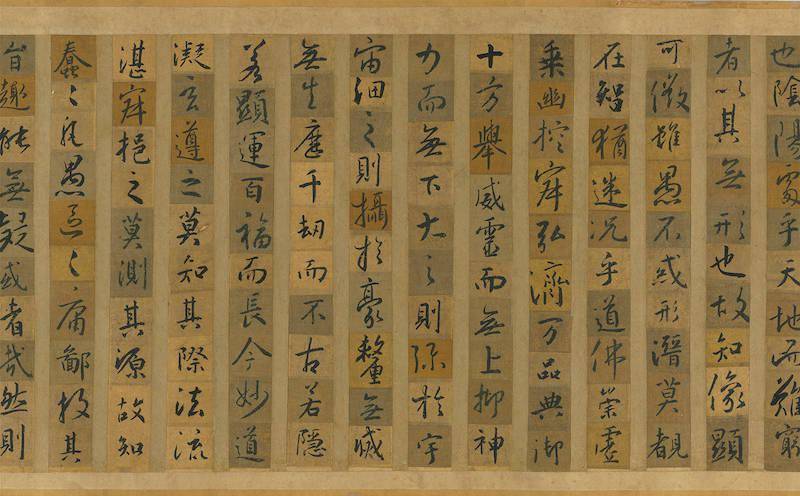 也陰陽處乎天地而難窮
者以其無形也故知像顯
可徵雖愚不惑形潛莫覩
在智猶迷況乎道佛崇虛
乘幽控寂弘濟万品典御
十方舉威靈而無上抑神
力而無下大之則彌於宇
宙細之則攝於豪釐無滅
無生歷千劫而不古若隱
若顯運百福而長今妙道
凝玄遵之莫知其際法流
湛寂挹之莫測其源故知
蠢々凡愚區々庸鄙投其
旨趣能無疑或者哉然則